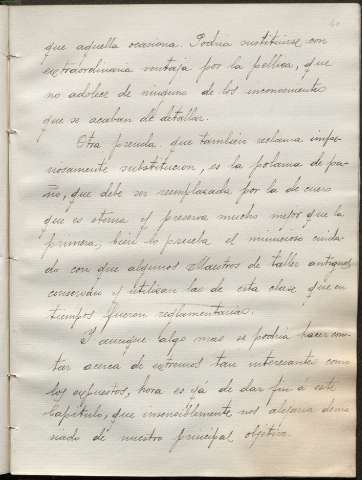 que aquella ocasiona. Podria sustituirse con
extraordinaria ventaja por la pelliza, que
no adolece de ninguno de los inconvenientes
que se acaban de detallar.
Otra prenda que tambien reclama impe-
riosamente substitucion, es la polaina de pa-
ño, que debe ser reemplazada por la de cuero
que es eterna y preserva mucho mejor que la
primera; bien lo prueba el minucioso cuida-
do con que algunos Maestros de taller antiguos
conservan y utilizan las de esta clase que en
tiempos fueron reglamentarias.
Y aunque algo mas se podria hacer cons-
tar acerca de extremos tan interesantes como
los expuestos, hora es yá de dar fin á este
Capítulo, que insensiblemente nos alejaria dema-
siado de nuestro principal objetivo.